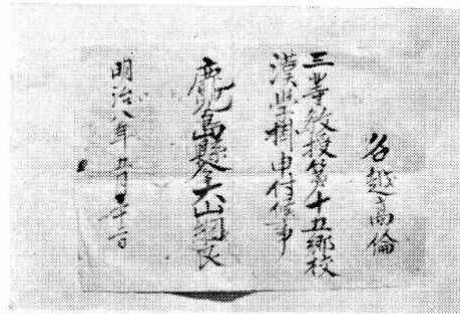 名越高倫
三等教授第十五郷校
漢学掛申付候事
鹿児島縣令大山綱良
明治八年五月